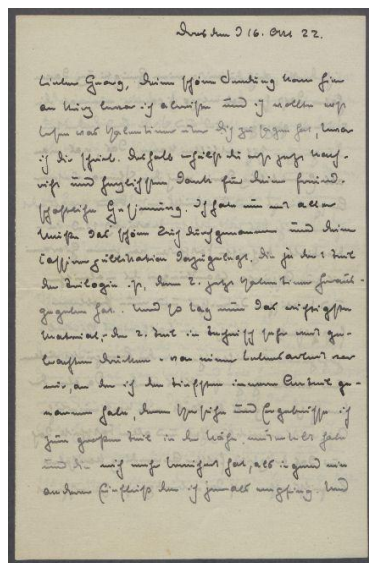 Dresden 16. Okt 22.
Lieber Georg, Deine schöne Sendung kam hier
an kurz bevor ich abreiste und ich wollte erst
lesen was Valentiner über Dich zu sagen hat, bevor
ich Dir schrieb. Deshalb erhältst Du erst jetzt Nach-
richt und herzlichsten Dank für Deine freund-
schaftliche Gesinnung. Ich habe nun mit aller
Muße das schöne Buch durchgenommen und Deine
publikation dazugelegt, die ja der 1. Teil
der Trilogie ist, deren 2. jetzt Valentiner heraus-
gegeben hat. Und so lag nun das wichtigste
Material, der 2. Teil in technisch sehr gut ge-
brachten Drucken, von einer Lebensarbeit vor
mir, an der ich den tiefsten inneren Anteil ge-
nommen habe, deren Versuche und Ergebnisse ich
zum großen Teil in der Nähe miterlebt habe
und die mich mehr bereichert hat, als irgend ein
anderer Einfluß den ich jemals empfing. Und